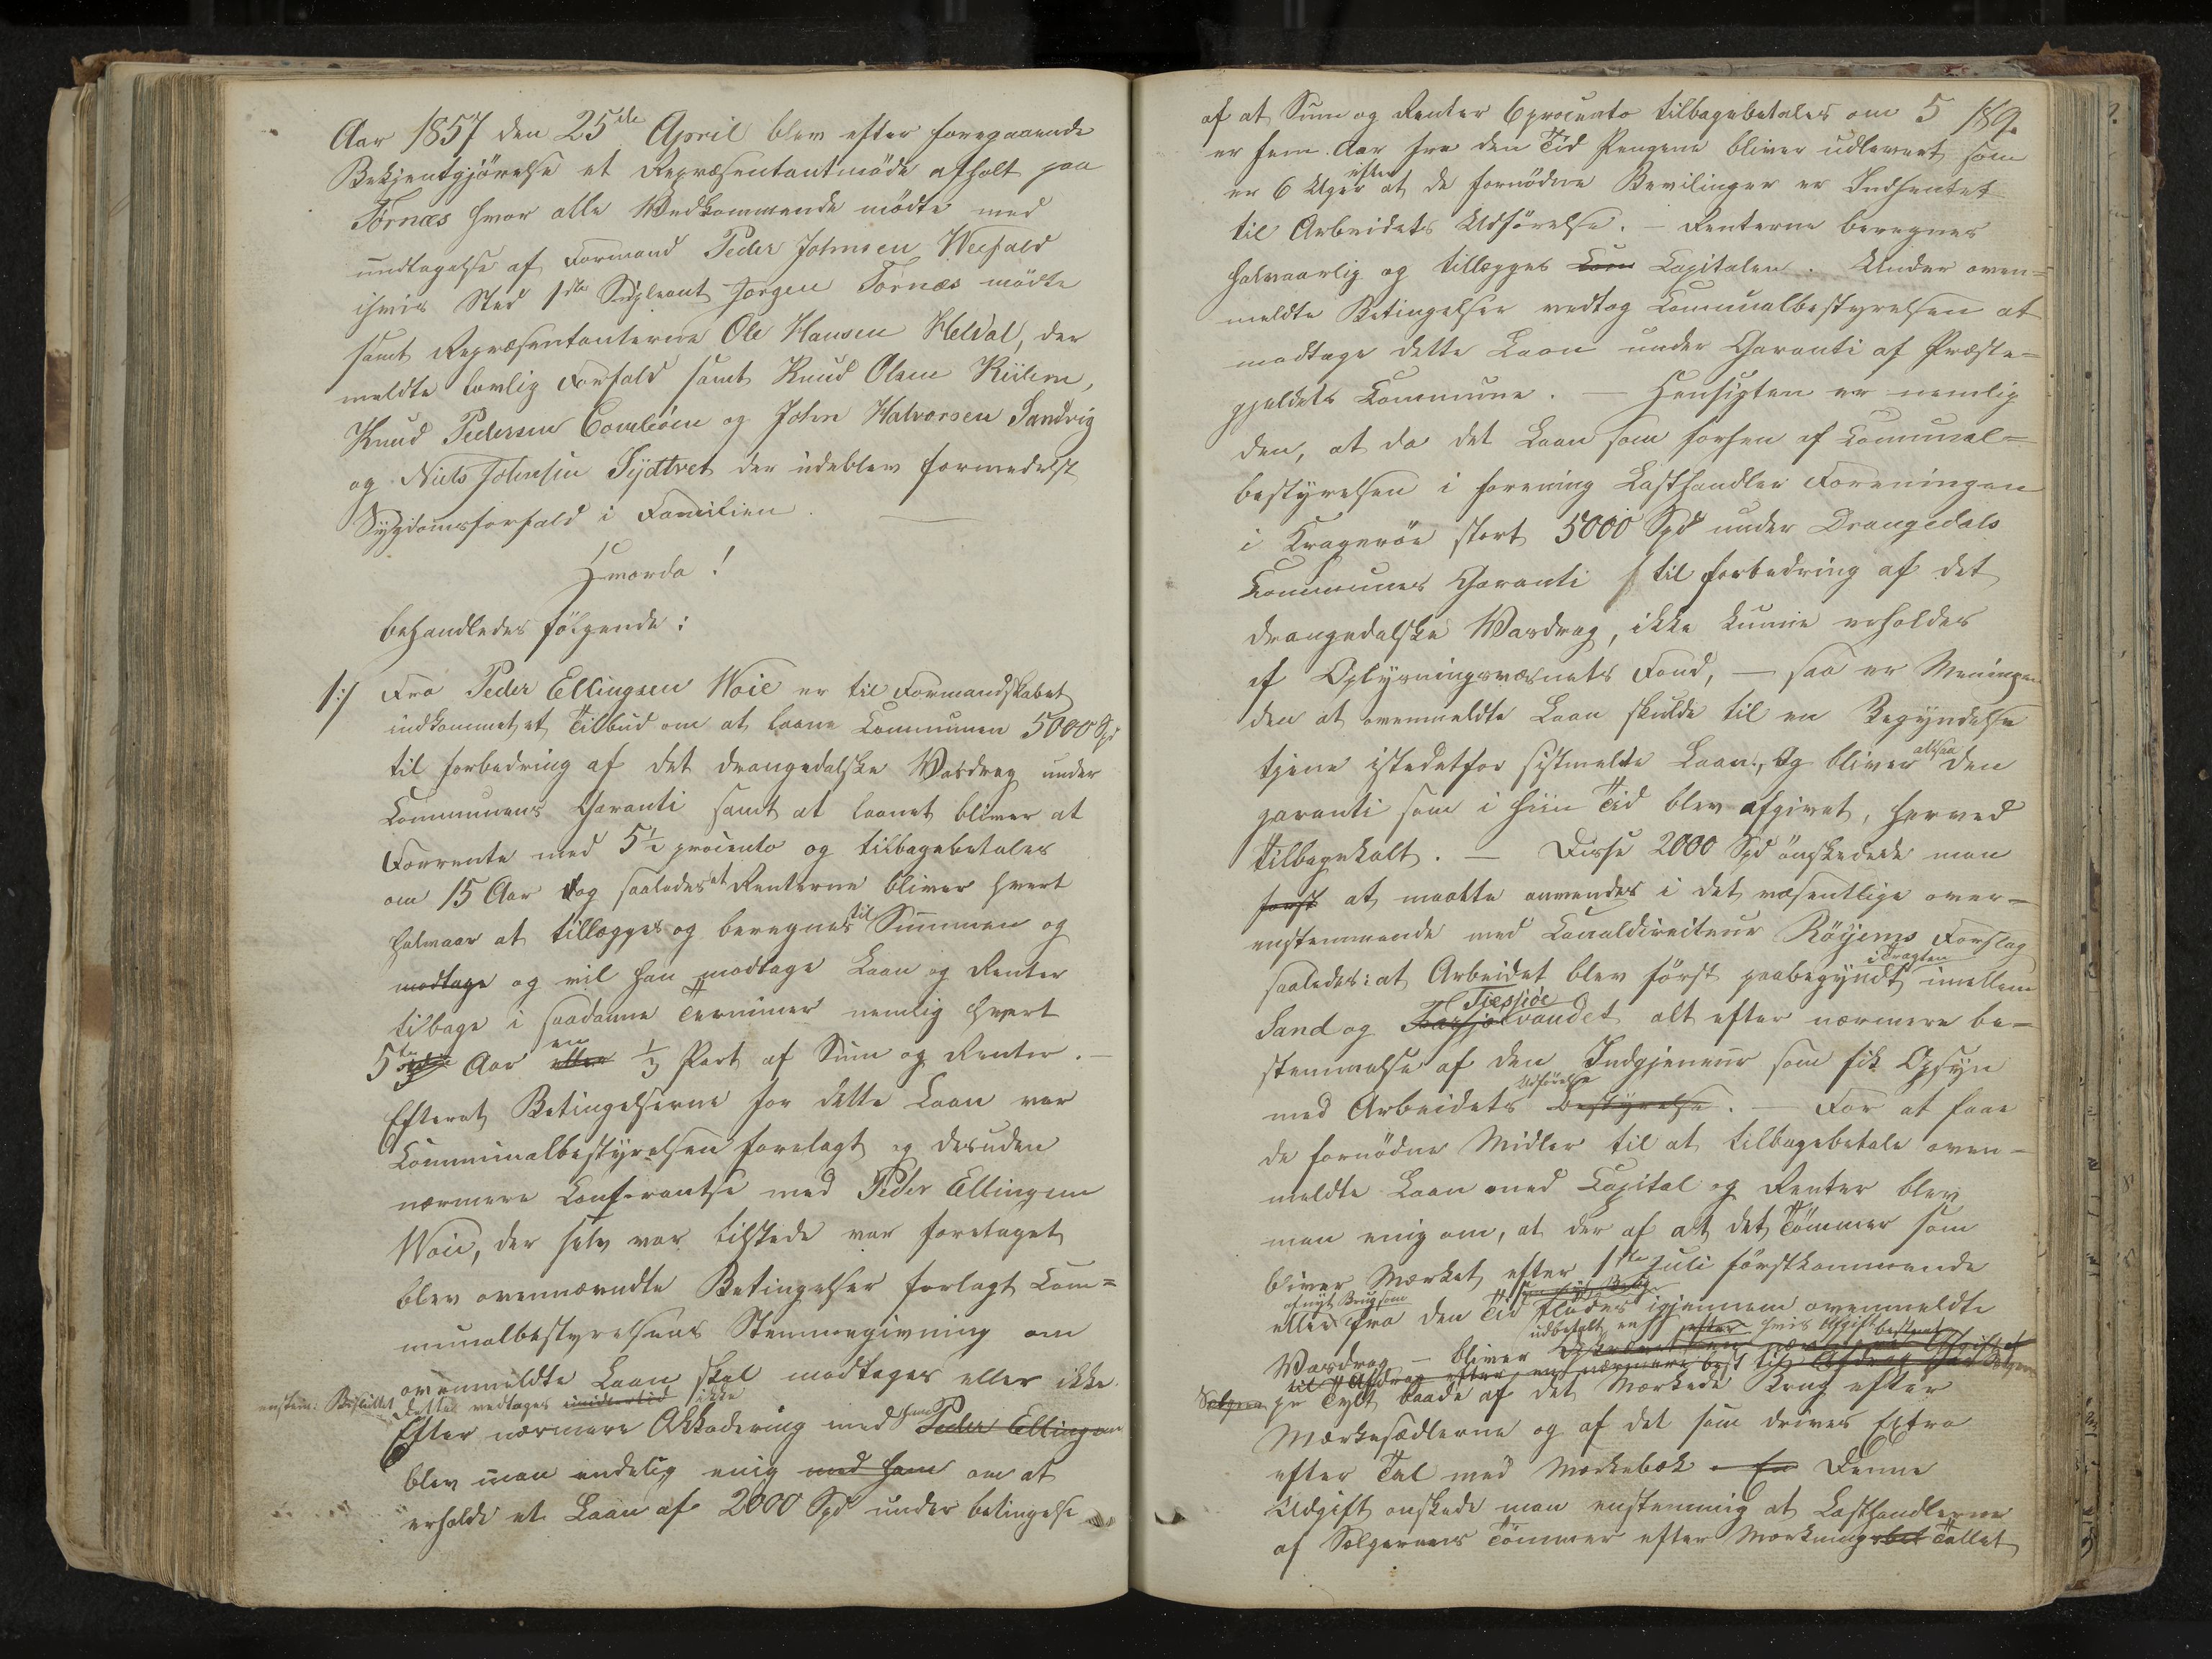 Aar 1857 den 25de April blev efter foregaaende
Bekjentgjørelse et Repræsentantmøde afholt paa
Tørnæs hvor alle Vedkommende mødte med
undtagelse af Formand Peder Johnsen Weefald
ihvis Sted 1ste Supleant Jørgen Tørnæs mødte
samt Repræsentanterne Ole Hansen Heldal, der
meldte lovlig Forfald samt Knud Olsen
Knud Pedersen og John Halvorsen Sandvig
og Niels Johnsen der udeblev formedelst
Sygdomsforfald i Familien. —
Hvorda!
behandledes følgende:
1:/ Fra Peder Ellingsen Woie er til Formandskabet
indkommet et Tilbud om at laane Communen 5000 Spd
til forbedring af det drangedalske Vasdrag under
Communens Garanti samt at laanet bliver at
Forrente med 5½ procento og tilbagebetales
om 15 Aar dog saaledes at Renterne bliver hvert
halvaar at tillægges og beregnes til Summen og
modtage og vil han modtage Laan og Renter
tilbage i saadanne Terminer nemlig hvert
5te Aar en 1/3 Part af Sum og Renter. —
Efterat Betingelserne for dette Laan var
Communalbestyrelsen forelagt og desuden
nærmere Conferantse med Peder Ellingsen
Woie, der selv var tilstede var foretaget
blev ovennævndte Betingelser forlagt Com=
munalbestyrelsens Stemmegivning om
ovenmeldte Laan skal modtages eller ikke.
enstem: Besluttet dette vedtages imidlertid ikke
Efter nærmere Akkodering med ham Peder Ellingsen
blev man endelig enig med ham om at
erholde et Laan af 2000 Spd under betingelse
189.
af at Sum og Renter 6 procento tilbagebetales om 5
er fem Aar fra den Tid Pengene bliver udleveret som
er 6 Uger efter at de fornødne Bevilinger er Indhentet
til Arbeidets Udførelse. — Renterne beregnes
halvaarlig og tillægges Capitalen. Under oven=
meldte Betingelser vedtog Comunalbestyrelsen at
modtage dette Laan under Garanti af Præste=
gjeldets Commune. — Hensigten er nemlig
den, at da det Laan som forhen af Comunal=
bestyrelsen i forening Lasthandler Foreningen
i Kragerøe stort 5000 Spd under Drangedals
Communes Garanti til forbedring af det
drangedalske Vasdrag, ikke kunne erholdes
af Oplysningsvæsnets Fond, — saa er Meningen
den at ovenmeldte Laan skulde til en Begyndelse
tjene istedetfor sistmeldte Laan., og bliver altsaa den
garanti som i hiin Tid blev afgivet, herved
tilbagekalt. — Disse 2000 Spd ønskedede man
først at maatte anvendes i det væsentlige over=
enstemmende med Canaldirecteur Röyems Forslag
saaledes: at Arbeidet blev først paabegyndt i Tragten imellem
Sand og Tjessjøe vandet alt efter nærmere be=
stemmelse af den Indgjeneur som fik Opsyn
med Arbeidets Udførelse bestyrelse. — For at faae
de fornødne Midler til at tilbagebetale oven=
meldte Laan med Capital og Renter blev
man enig om, at der af alt det Tømmer som
bliver Mærket efter 1ste Juli førstkommende
af nyt Brug som
eller fra den Tid flødes igjennem ovenmeldte
udbetalt en efter hvis Afgift bestemt
Vasdrag — bliver
til Afdrag efter en nærmere best til Afdrag
Sælgeren pr Tylt baade af det Mærkede Brug efter
Mærkesedlerne og af det som drives Extra
efter Tal med Mærkebok. En Denne
Udgift ønskede man enstemmig at Lasthandlerne
af Sælgernes Tømmer efter Mærkningsbet Tallet